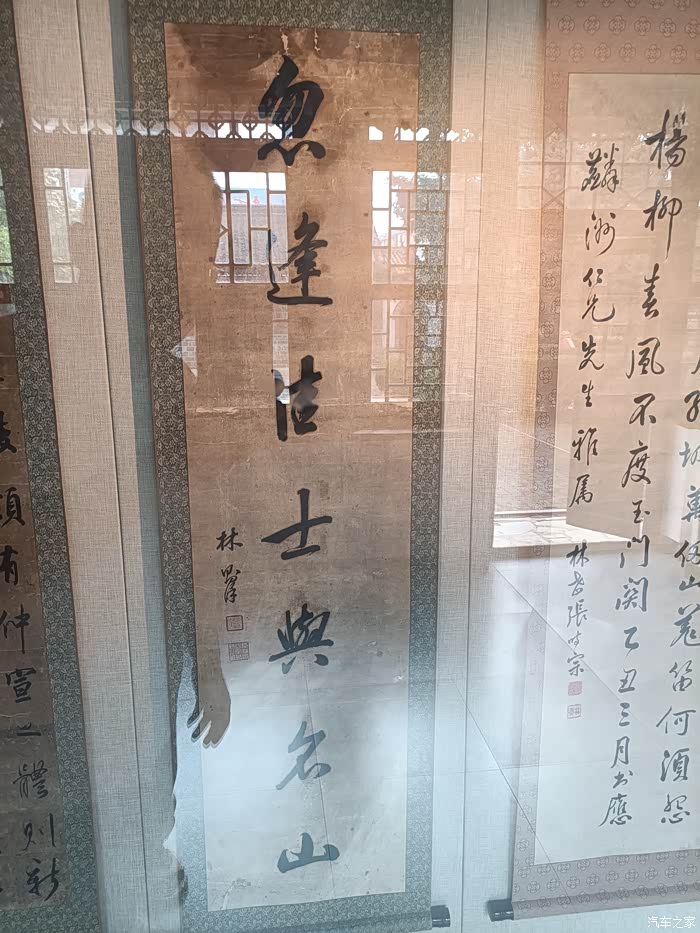 孤城萬仞山羌笛何須怨
楊柳春風不度玉門關乙丑三月書應
麟洲仁兄先生雅屬
張時宗
忽逢佳士與名山
林
有仲宣之體則新
汽车之家